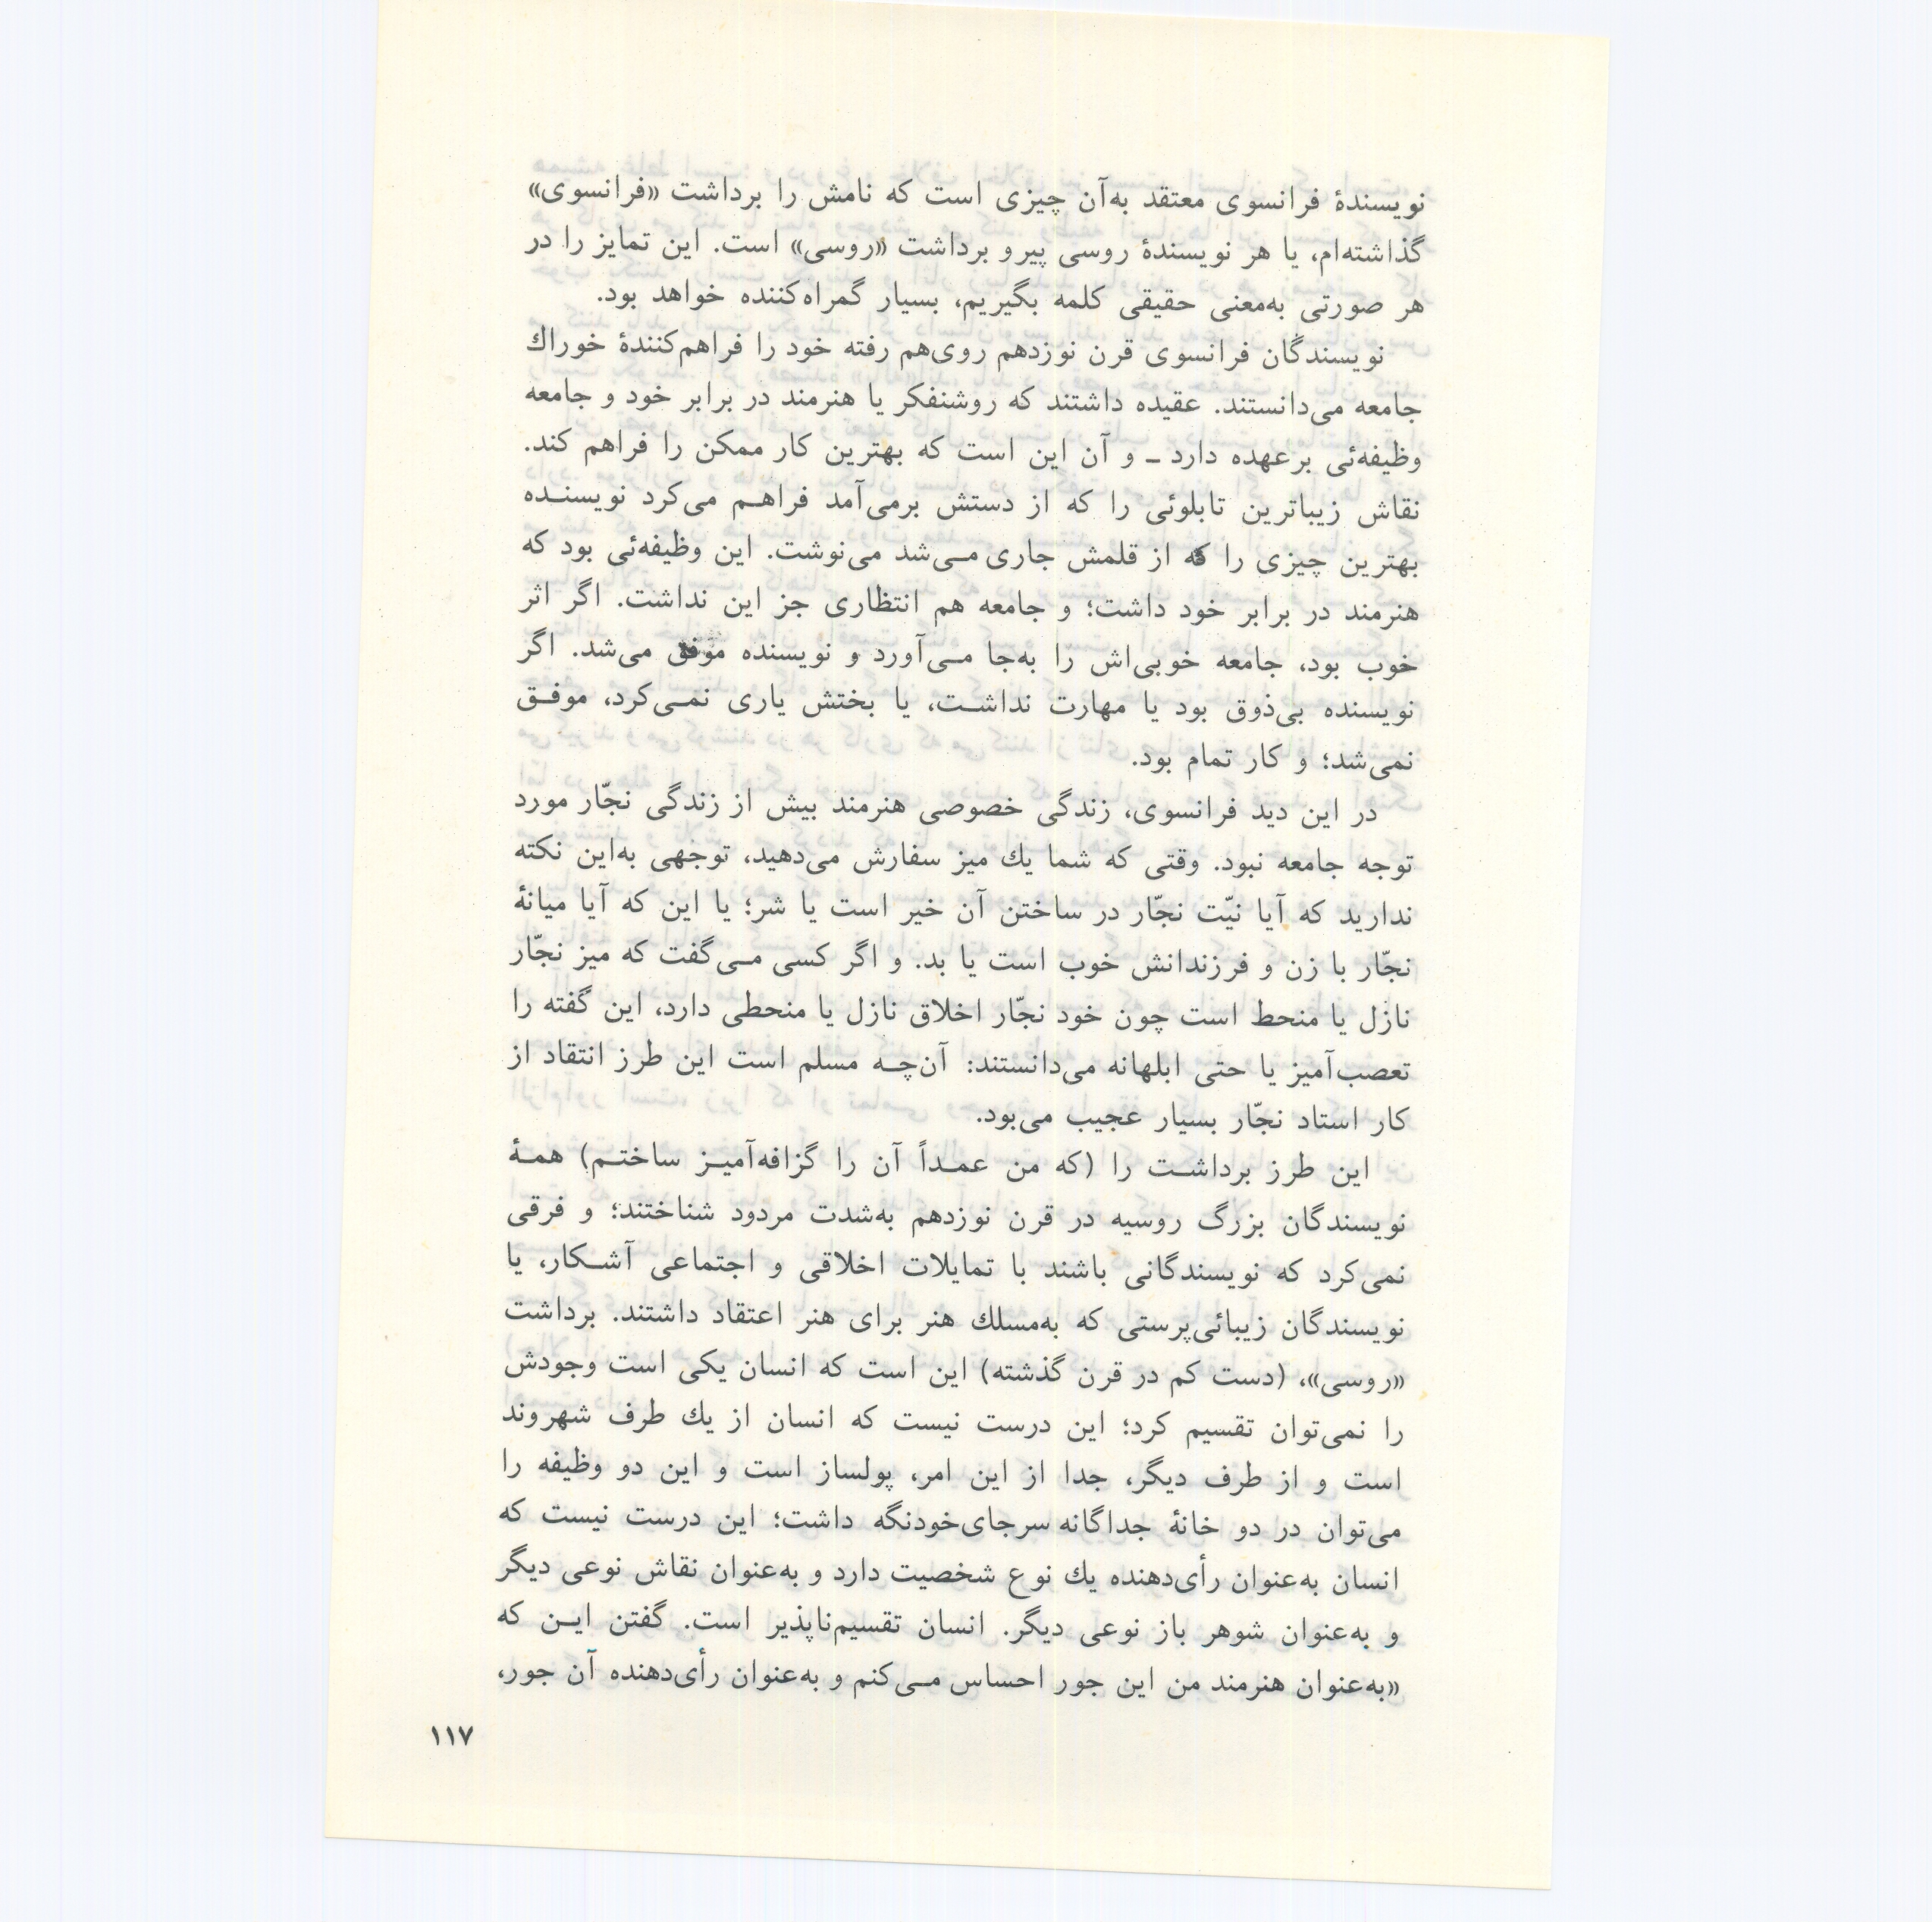 نویسندهٔ فرانسوی معتقد به‌آن چیزی است که نامش را برداشت «فرانسوی»
گذاشته‌ام، یا هر نویسندهٔ روسی پیرو برداشت «روسی» است. این تمایز را در
هر صورتی به‌معنی حقیقی کلمه بگیریم، بسیار گمراه‌کننده خواهد بود.
نویسندگان فرانسوی قرن نوزدهم روی‌هم رفته خود را فراهم‌کنندهٔ خوراك
جامعه می‌دانستند. عقیده داشتند که روشنفکر یا هنرمند در برابر خود و جامعه
وظیفه‌ئی برعهده دارد ـ و آن این است که بهترین کار ممکن را فراهم کند.
نقاش زیباترین تابلوئی را که از دستش برمی‌آمد فراهـم می‌کرد نویسنـده
بهترین چیزی را که از قلمش جاری مـی‌شد می‌نوشت. این وظیفه‌ئی بود که
هنرمند در برابر خود داشت؛ و جامعه هم انتظاری جز این نداشت. اگر اثر
خوب بود، جامعه خوبی‌اش را به‌جا مـی‌آورد و نویسنده موفق می‌شد. اگر
نویسنده بی‌ذوق بود یا مهارت نداشـت، یا بختش یاری نمـی‌کرد، موفـق
نمی‌شد؛ و کار تمام بود.
در این دید فرانسوی، زندگی خصوصی هنرمند بیش از زندگی نجّار مورد
توجه جامعه نبود. وقتی که شما یك میز سفارش می‌دهید، توجهی به‌این نکته
ندارید که آیا نیّت نجّار در ساختن آن خیر است یا شر؛ یا این که آیا میانهٔ
نجّار با زن و فرزندانش خوب است یا بد. و اگر کسی مـی‌گفت که میز نجّار
نازل یا منحط است چون خود نجّار اخلاق نازل یا منحطی دارد، این گفته را
تعصب‌آمیز یا حتی ابلهانه می‌دانستند: آن‌چـه مسلم است این طرز انتقاد از
کار استاد نجّار بسیار عجیب می‌بود.
این طرز برداشـت را (که من عمـداً آن را گزافه‌آمیـز ساختـم) همـهٔ
نویسندگان بزرگ روسیه در قرن نوزدهم به‌شدت مردود شناختند؛ و فرقی
نمی‌کرد که نویسندگانی باشند با تمایلات اخلاقی و اجتماعی آشـکار، یا
نویسندگان زیبائی‌پرستی که به‌مسلك هنر برای هنر اعتقاد داشتند. برداشت
«روسی»، (دست کم در قرن گذشته) این است که انسان یکی است وجودش
را نمی‌توان تقسیم کرد؛ این درست نیست که انسان از یك طرف شهروند
است و از طرف دیگر، جدا از این امر، پولساز است و این دو وظیفه را
می‌توان در دو خانهٔ جداگانه سرجای‌خودنگه داشت؛ این درست نیست که
انسان به‌عنوان رأی‌دهنده یك نوع شخصیت دارد و به‌عنوان نقاش نوعی دیگر
و به‌عنوان شوهر باز نوعی دیگر. انسان تقسیم‌ناپذیر است. گفتن ایـن که
«به‌عنوان هنرمند من این جور احساس مـی‌کنم و به‌عنوان رأی‌دهنده آن جور،
۱۱۷